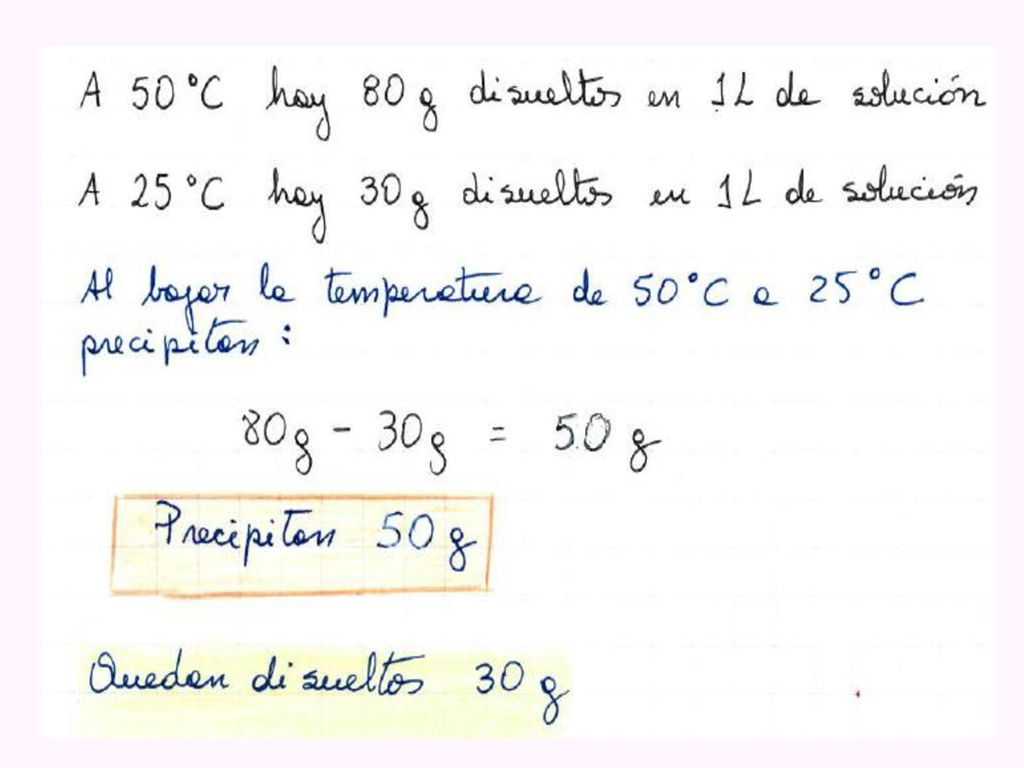 A 50°C hay 80 g disueltos en 1L de solución
A 25°C hay 30 g disueltos en 1L de solución
Al bajar la temperatura de 50°C a 25°C
precipitan:
80g - 30g = 50 g
Precipitan 50 g
Quedan disueltos 30 g